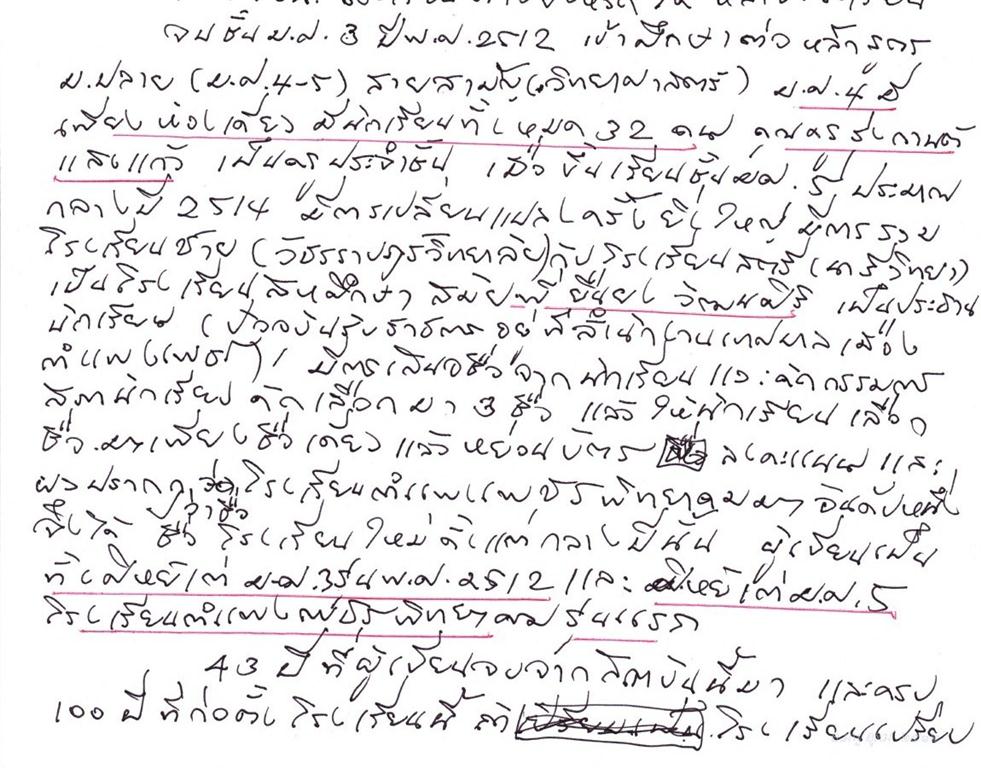 จนชั้นม.ศ. 3 ปีพ.ศ.2512 เข้าศึกษาต่อ หลักสูตร
ม.ปลาย (ม.ศ.4-5) สายสามัญ(วิทยาศาสตร์) ม.ศ.4 มี
เพียงห้องเดียว มีนักเรียนทั้งหมด 32 คน คุณครู
แสงแก้ว เป็นครูประจำชั้น เมื่อขึ้นเรียนชั้นม.ศ. 5 ประมาณ
กลางปี 2514 มีการเปลี่ยนแปลงครั้งยิ่งใหญ่ มีการรวม
โรงเรียนชาย (วัชรราษฎร์วิทยาลัย)กับโรงเรียนสตรี (นารีวิทยา)
เป็นโรงเรียนสหศึกษา สมัยพี่ยืนยง เป็นประธาน
นักเรียน (ปัจจุบันรับราชการอยู่ที่สำนักงานเทศบาลเมือง
กำแพงเพชร) มีการเสนอชื่อจากนักเรียน และคณะกรรมการ
สภานักเรียน คัดเลือกมา 3 ชื่อ แล้วให้นักเรียนเลือก
ชื่อ มาเพียงชื่อเดียว แล้วหย่อนบัตร ลงคะแนน และ
ผลปรากฏว่าชื่อโรงเรียนกำแพงเพชรพิทยาคมมาอันดับหนึ่ง
จึงได้ ชื่อ โรงเรียนใหม่ตั้งแต่กลางปีนั้น ผู้เขียนเป็น
ทั้งศิษย์เก่า ม.ศ.3รุ่นพ.ศ.2512 และ ศิษย์เก่าม.ศ.5
โรงเรียนกำแพงเพชรพิทยาคม รุ่นแรก
43 ปี ที่ผู้เขียนจบจากสถาบันนี้มา และครบ
100 ปี ที่ก่อตั้งโรงเรียนนี้ โรงเรียนเปรียบ